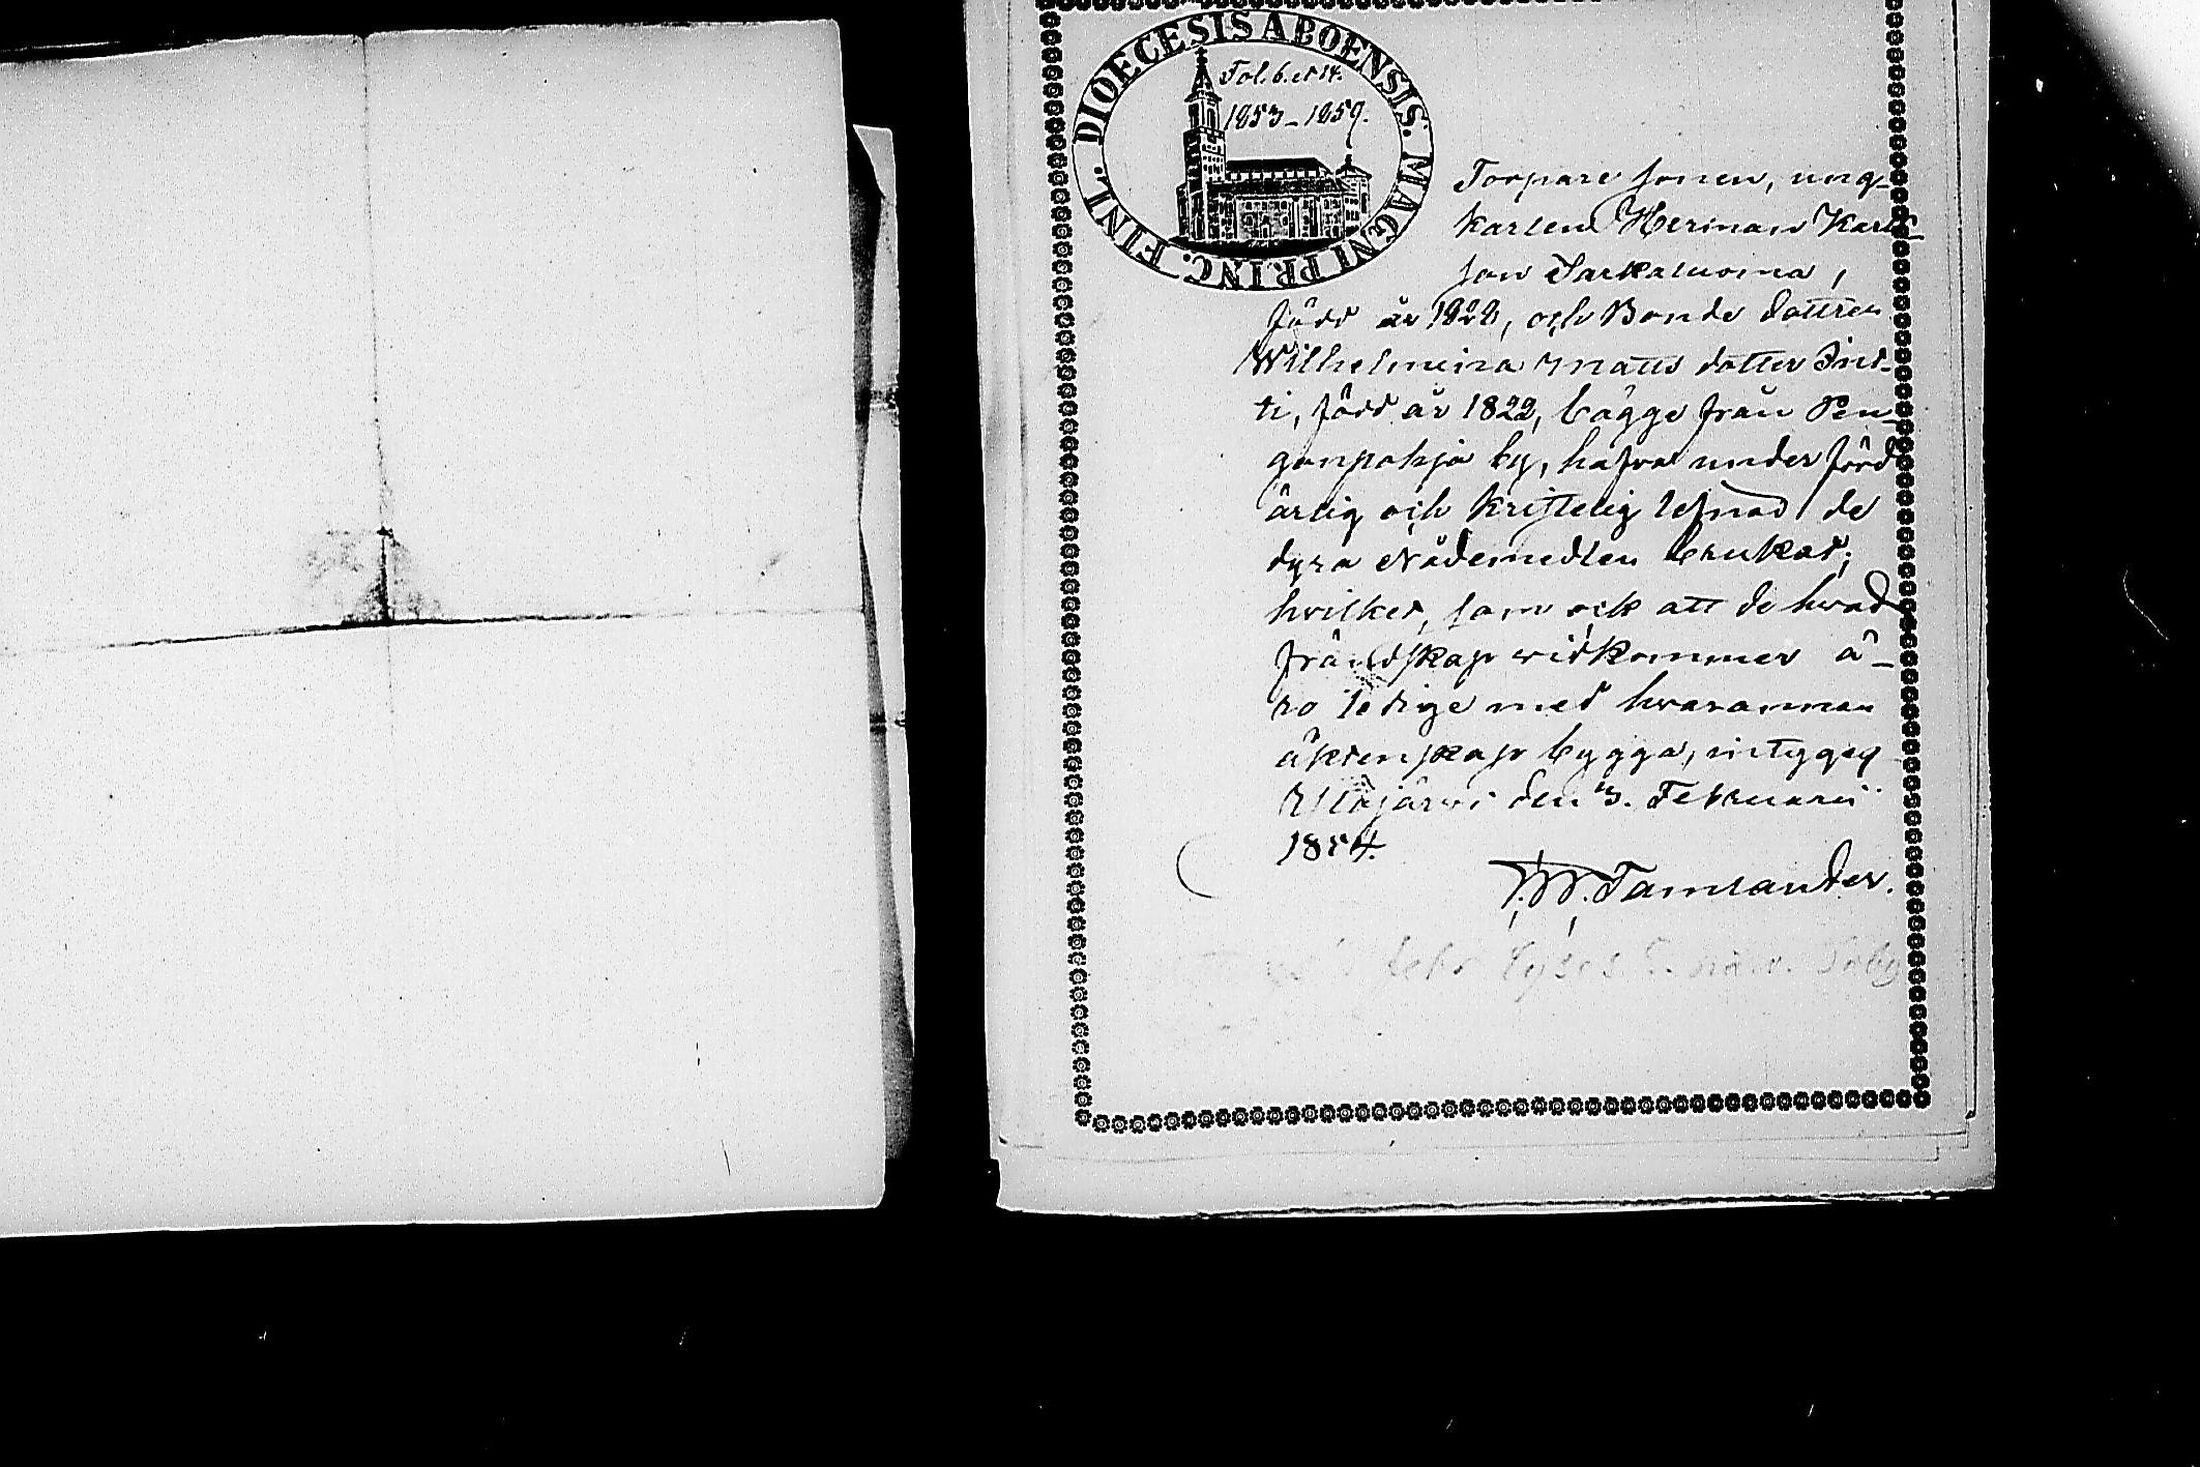 DIOECESIS ABOENSIS. MAGNI PRINC. FINL.
Fol. 6. et 14.
1853–1859.
Torpare sonen, ung-
karlen Herman Karls-
son Sarkaluoma,
född år 1828, och Bonde dottren
Wilhelmina Matts dotter
ti, född år 1822, bägge från Pen-
gonpohja by, hafva under förd
ärlig och kristelig lefnad de
dyra Nådemedlen brukat;
hvilket, som ock att de hvad
frändskap widkommer ä-
ro ledige med hvarannan
äktenskap bygga, intygas
Ylöjärvi den 3. Februarii
1854.
Tamlander.